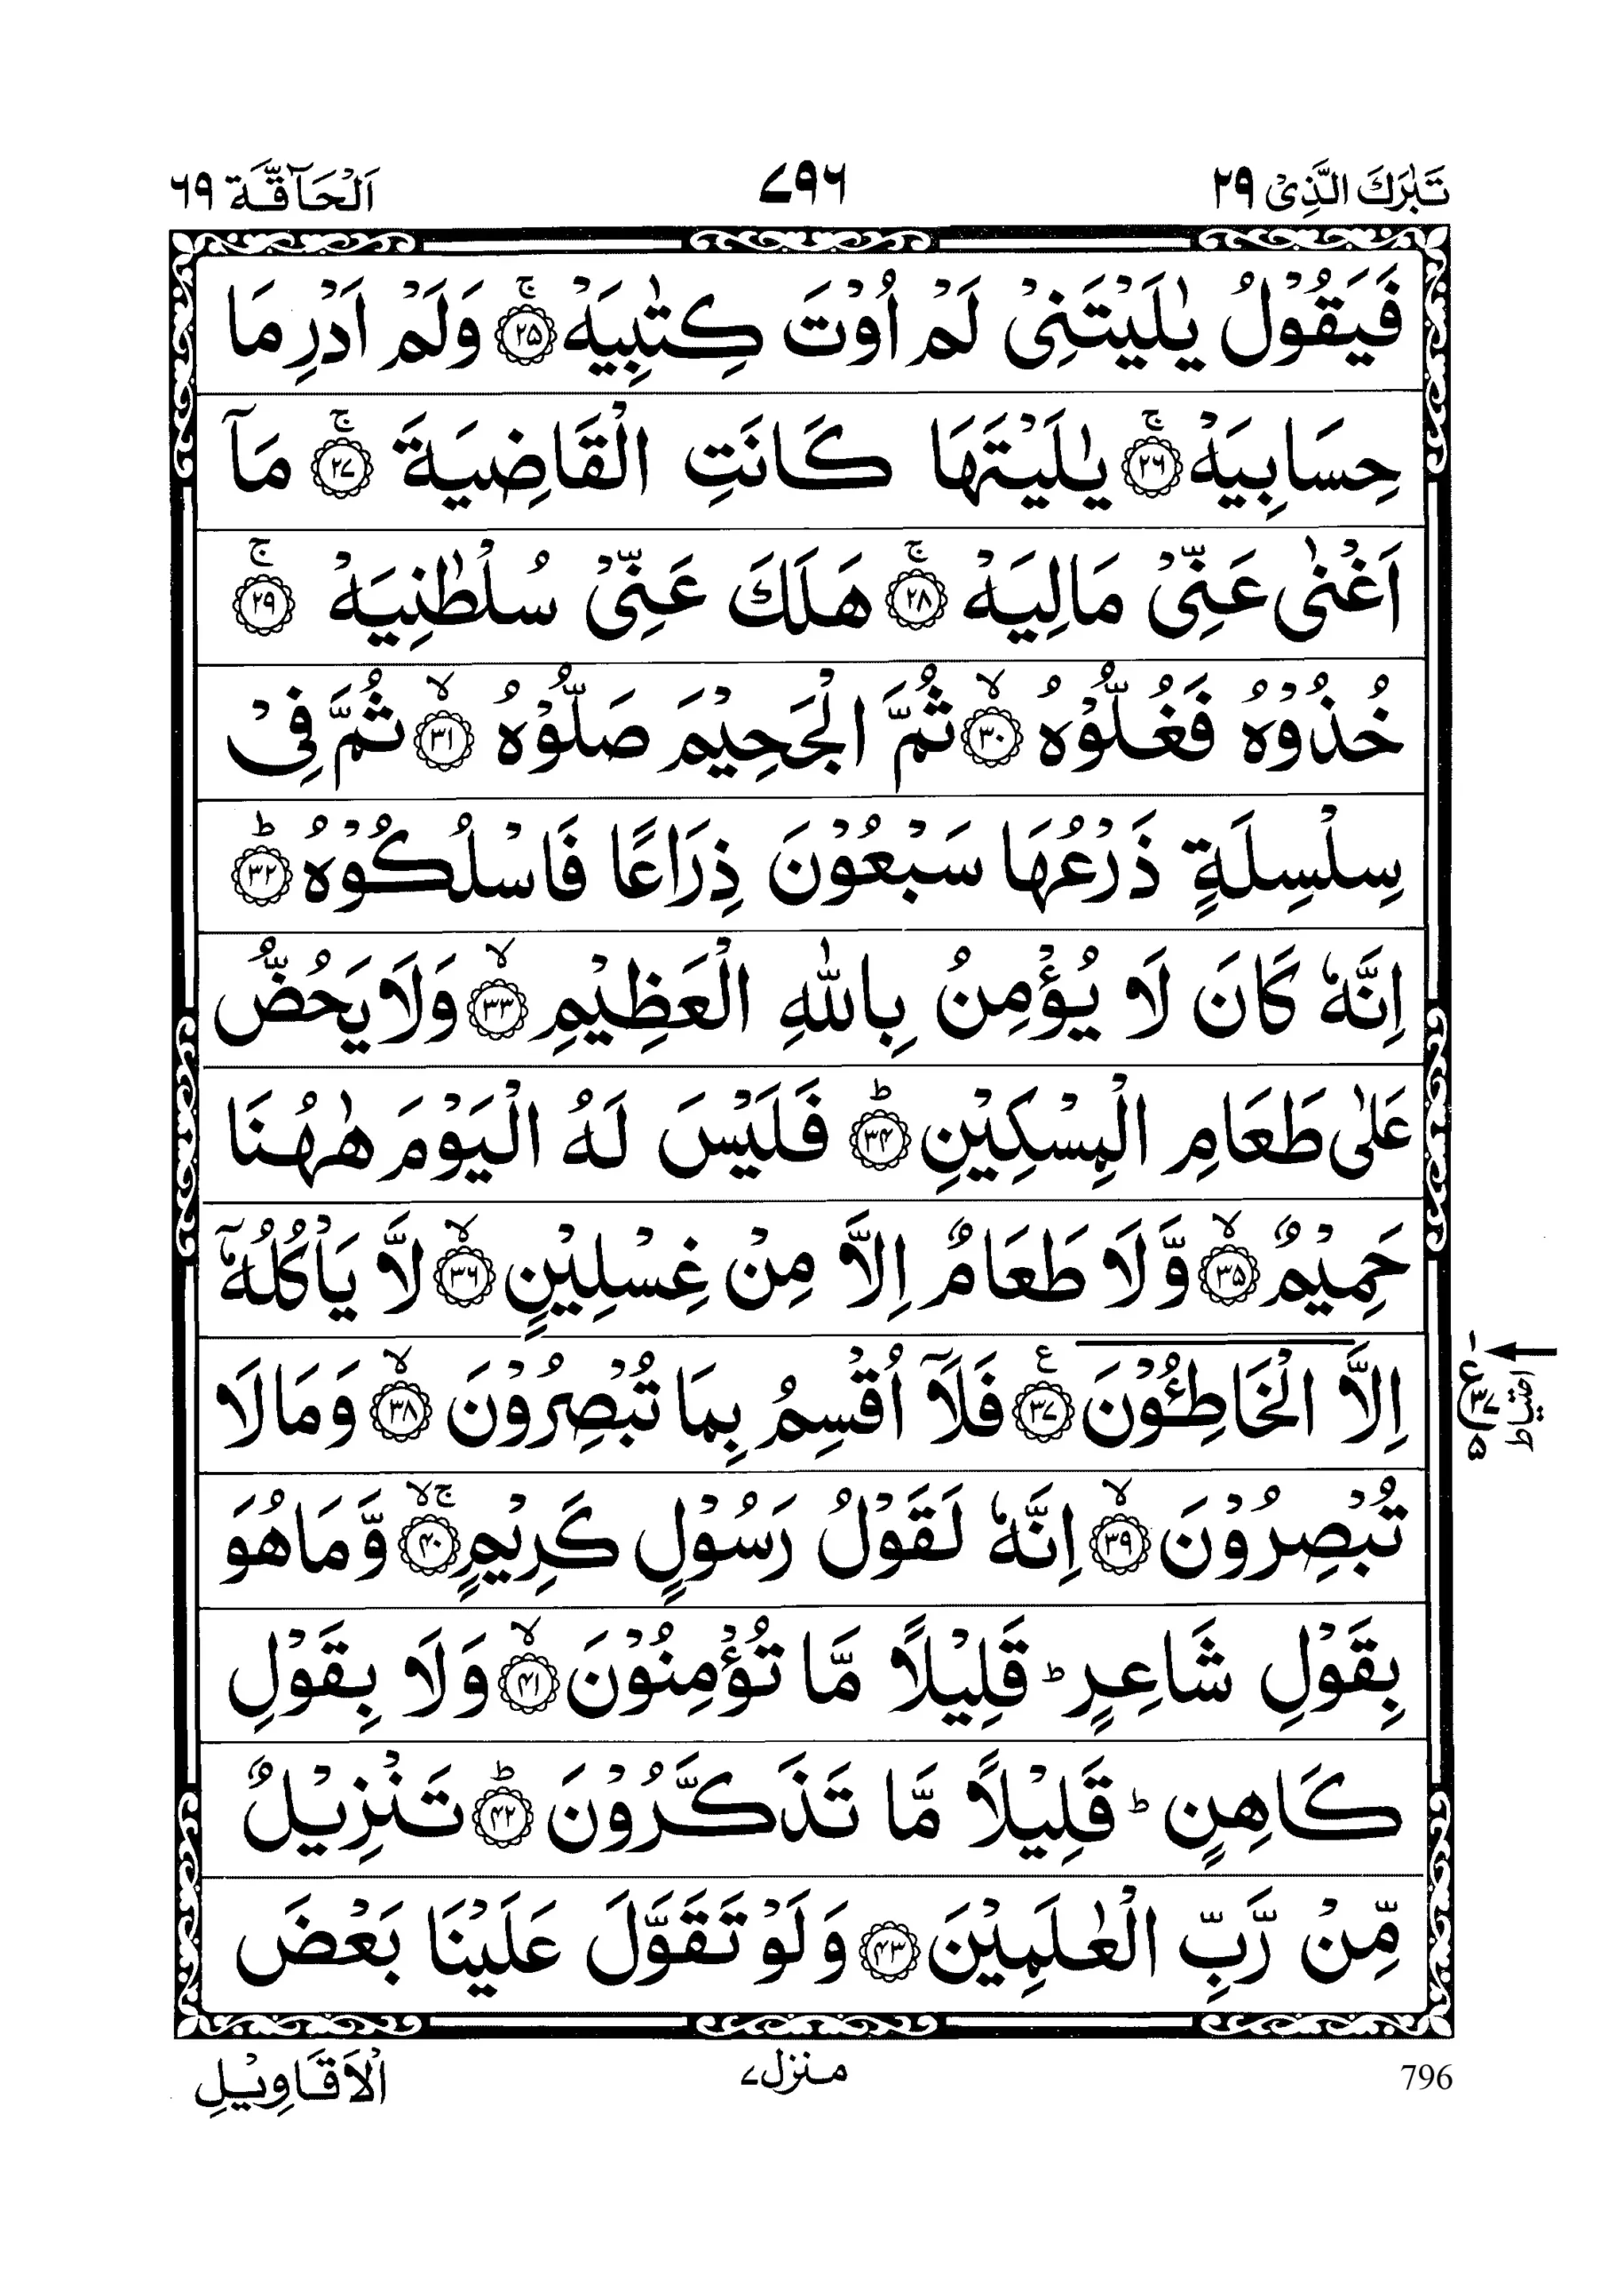 تَبٰرَكَ الَّذِیْ ۲۹
۷۹۶
اَلْحَآقَّة ۶۹
فَيَقُوْلُ يٰلَيْتَنِیْ لَمْ اُوْتَ كِتٰبِيَهْ ۚ﴿۲۵﴾ وَلَمْ اَدْرِ مَا
حِسَابِيَهْ ۚ﴿۲۶﴾ يٰلَيْتَهَا كَانَتِ الْقَاضِيَةَ ۚ﴿۲۷﴾ مَآ
اَغْنٰى عَنِّیْ مَالِيَهْ ۚ﴿۲۸﴾ هَلَكَ عَنِّیْ سُلْطٰنِيَهْ ۚ﴿۲۹﴾
خُذُوْهُ فَغُلُّوْهُ ۙ﴿۳۰﴾ ثُمَّ الْجَحِيْمَ صَلُّوْهُ ۙ﴿۳۱﴾ ثُمَّ فِیْ
سِلْسِلَةٍ ذَرْعُهَا سَبْعُوْنَ ذِرَاعًا فَاسْلُكُوْهُ ؕ﴿۳۲﴾
اِنَّهٗ كَانَ لَا يُؤْمِنُ بِاللّٰهِ الْعَظِيْمِ ۙ﴿۳۳﴾ وَلَا يَحُضُّ
عَلٰى طَعَامِ الْمِسْكِيْنِ ؕ﴿۳۴﴾ فَلَيْسَ لَهُ الْيَوْمَ هٰهُنَا
حَمِيْمٌ ۙ﴿۳۵﴾ وَّلَا طَعَامٌ اِلَّا مِنْ غِسْلِيْنٍ ۙ﴿۳۶﴾ لَّا يَاْكُلُهٗۤ
اِلَّا الْخَاطِـُٔوْنَ ﴿۳۷﴾ ع فَلَآ اُقْسِمُ بِمَا تُبْصِرُوْنَ ۙ﴿۳۸﴾ وَمَا لَا
تُبْصِرُوْنَ ۙ﴿۳۹﴾ اِنَّهٗ لَقَوْلُ رَسُوْلٍ كَرِيْمٍ ۚۙ﴿۴۰﴾ وَّمَا هُوَ
بِقَوْلِ شَاعِرٍ ؕ قَلِيْلًا مَّا تُؤْمِنُوْنَ ۙ﴿۴۱﴾ وَلَا بِقَوْلِ
كَاهِنٍ ؕ قَلِيْلًا مَّا تَذَكَّرُوْنَ ؕ﴿۴۲﴾ تَنْزِيْلٌ
مِّنْ رَّبِّ الْعٰلَمِيْنَ ﴿۴۳﴾ وَلَوْ تَقَوَّلَ عَلَيْنَا بَعْضَ
۱
ع ۳۷
۵
احتیاط
الْاَقَاوِيْلِ
منزل ۷
796